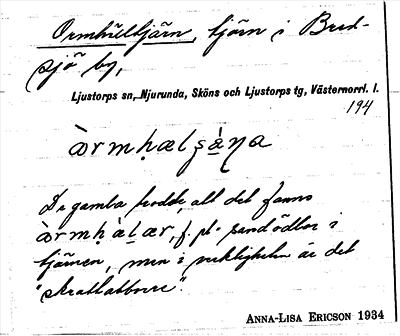 Ormhältjärn, tjärn i Bred-
sjö by,
Ljustorps sn, Njurunda, Sköns och Ljustorps tg, Västernorrl. l.
194
De gamla trodde, att det fanns
f. pl. sandödlor i
tjärnen, men i verkligheten är det
"skrattabborre".
ANNA-LISA ERICSON 1934